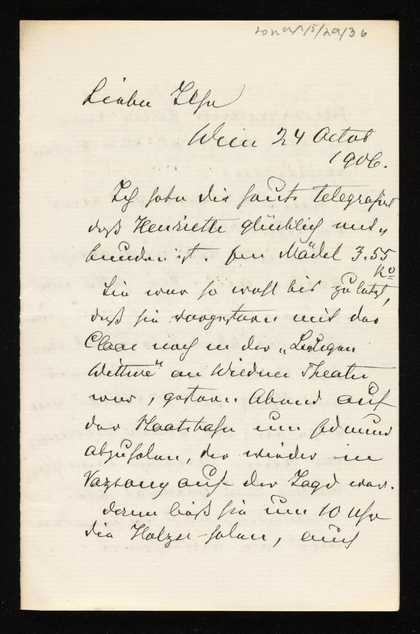 Liebe Ilse
Wien 24 Octob
1906.
Ich habe dir heute telegrafirt
daß Henriette glücklich ent„
bunden ist. Ein Mädel 3.55
Ko
Sie war so wohl bis zuletzt,
daß sie vorgestern mit der
Clara noch in der „Lustigen
Wittwe" an Wiedner Theater
war, gestern Abend auf
der Staatsbahn um Edmund
abzuholen, der wieder in
auf der Jagd war.
dann ließ sie um 10 Uhr
die Holzer holen, auch